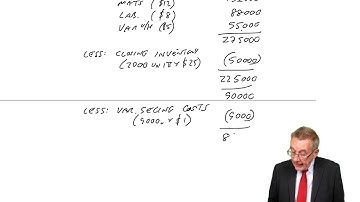 MATS ($12)
LAB. ($8) 88000
VAR O/H ($5) 55000
275000
LESS: CLOSING INVENTORY (50000)
(2000 UNITS × $25)
225000
90000
LESS: VAR. SELLING COSTS (9000)
(9000 × $1)
8